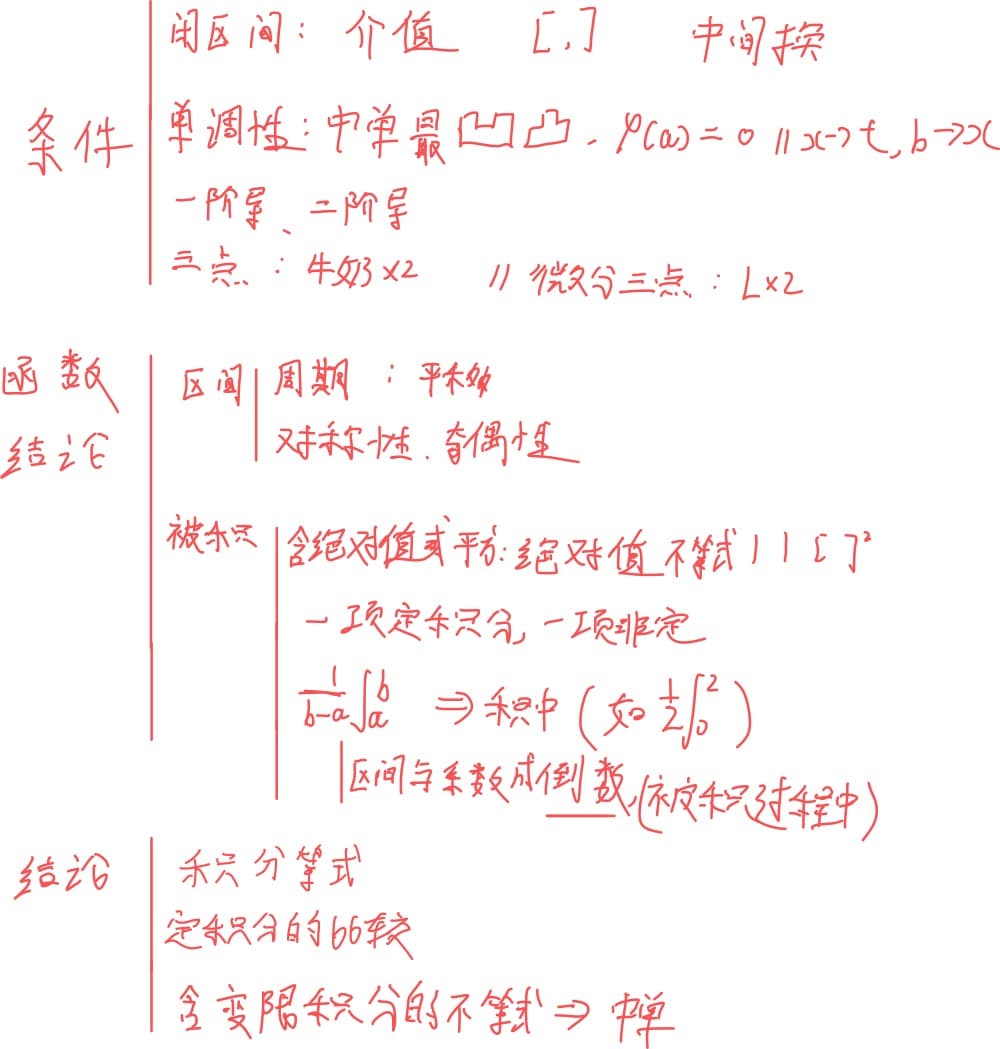 条件
闭区间: 介值 [,] 中间换
单调性: 中单最凹凸. φ(a)=0 //x->t, b->x
一阶导、二阶导
三点: 牛奶×2 // 微分三点: L×2
函数
结论
区间
周期: 平移
对称性. 奇偶性
被积
含绝对值或平方: 绝对值不等式 | | [ ]²
一项定积分, 一项非定
1/(b-a) ∫ₐᵇ ⇒ 积中 (如 1/2 ∫₀²)
区间与系数成倒数, (被积过程中)
结论
积分等式
定积分的比较
含变限积分的不等式 ⇒ 中单